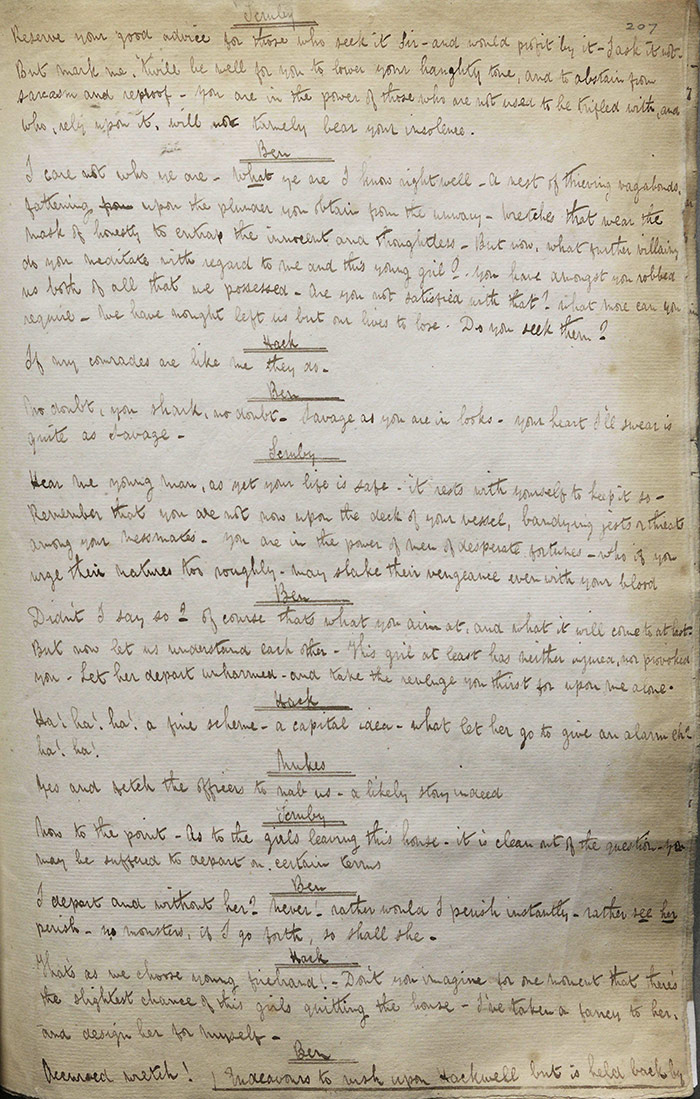 Scruby
207
Reserve your good advice for those who seek it Sir - and would profit by it - I ask it not -
But mark me, 'twill be well for you to lower your haughty tone, and to abstain from
sarcasm and reproof - You are in the power of those who are not used to be trifled with, and
who, rely upon it, will not tamely bear your insolence.
Ben
I care not who ye are - What ye are I know right well - A nest of thieving vagabonds,
fattening upon the plunder you obtain from the unwary - Wretches that wear the
mask of honesty to entrap the innocent and thoughtless - But now, what further villainy
do you meditate with regard to me and this young girl? You have amongst you robbed
us both of all that we possessed - Are you not satisfied with that? What more can you
require - We have nought left us but our lives to lose. Do you seek them?
Hack
If my comrades are like me they do -
Ben
No doubt, you shark, no doubt - Savage as you are in looks - your heart I'll swear is
quite as savage -
Scruby
Hear me young man, as yet your life is safe - it rests with yourself to keep it so -
Remember that you are not now upon the deck of your vessel, bandying jests or threats
among your messmates - You are in the power of men of desperate fortunes - who if you
urge their natures too roughly - may slake their vengeance even with your blood
Ben
Didn't I say so? of course thats what you aim at, and what it will come to at last -
But now let us understand each other - This girl at least has neither injured, nor provoked
you - Let her depart unharmed - and take the revenge you thirst for upon me alone -
Hack
Ha! ha! ha! a fine scheme - a capital idea - what let her go to give an alarm eh?
ha! ha!
Nukes
Yes and fetch the officers to nab us - a likely story indeed
Scruby
Now to the point - As to the girls leaving this house - it is clean out of the question - you
may be suffered to depart on certain terms
Ben
I depart and without her? Never! rather would I perish instantly - rather see her
perish - no monsters, if I go forth, so shall she -
Hack
That's as we choose young firebrand! - Don't you imagine for one moment that there's
the slightest chance of this girls quitting the house - I've taken a fancy to her,
and design her for myself -
Ben
Accursed wretch! Endeavours to rush upon Hackwell but is held back by